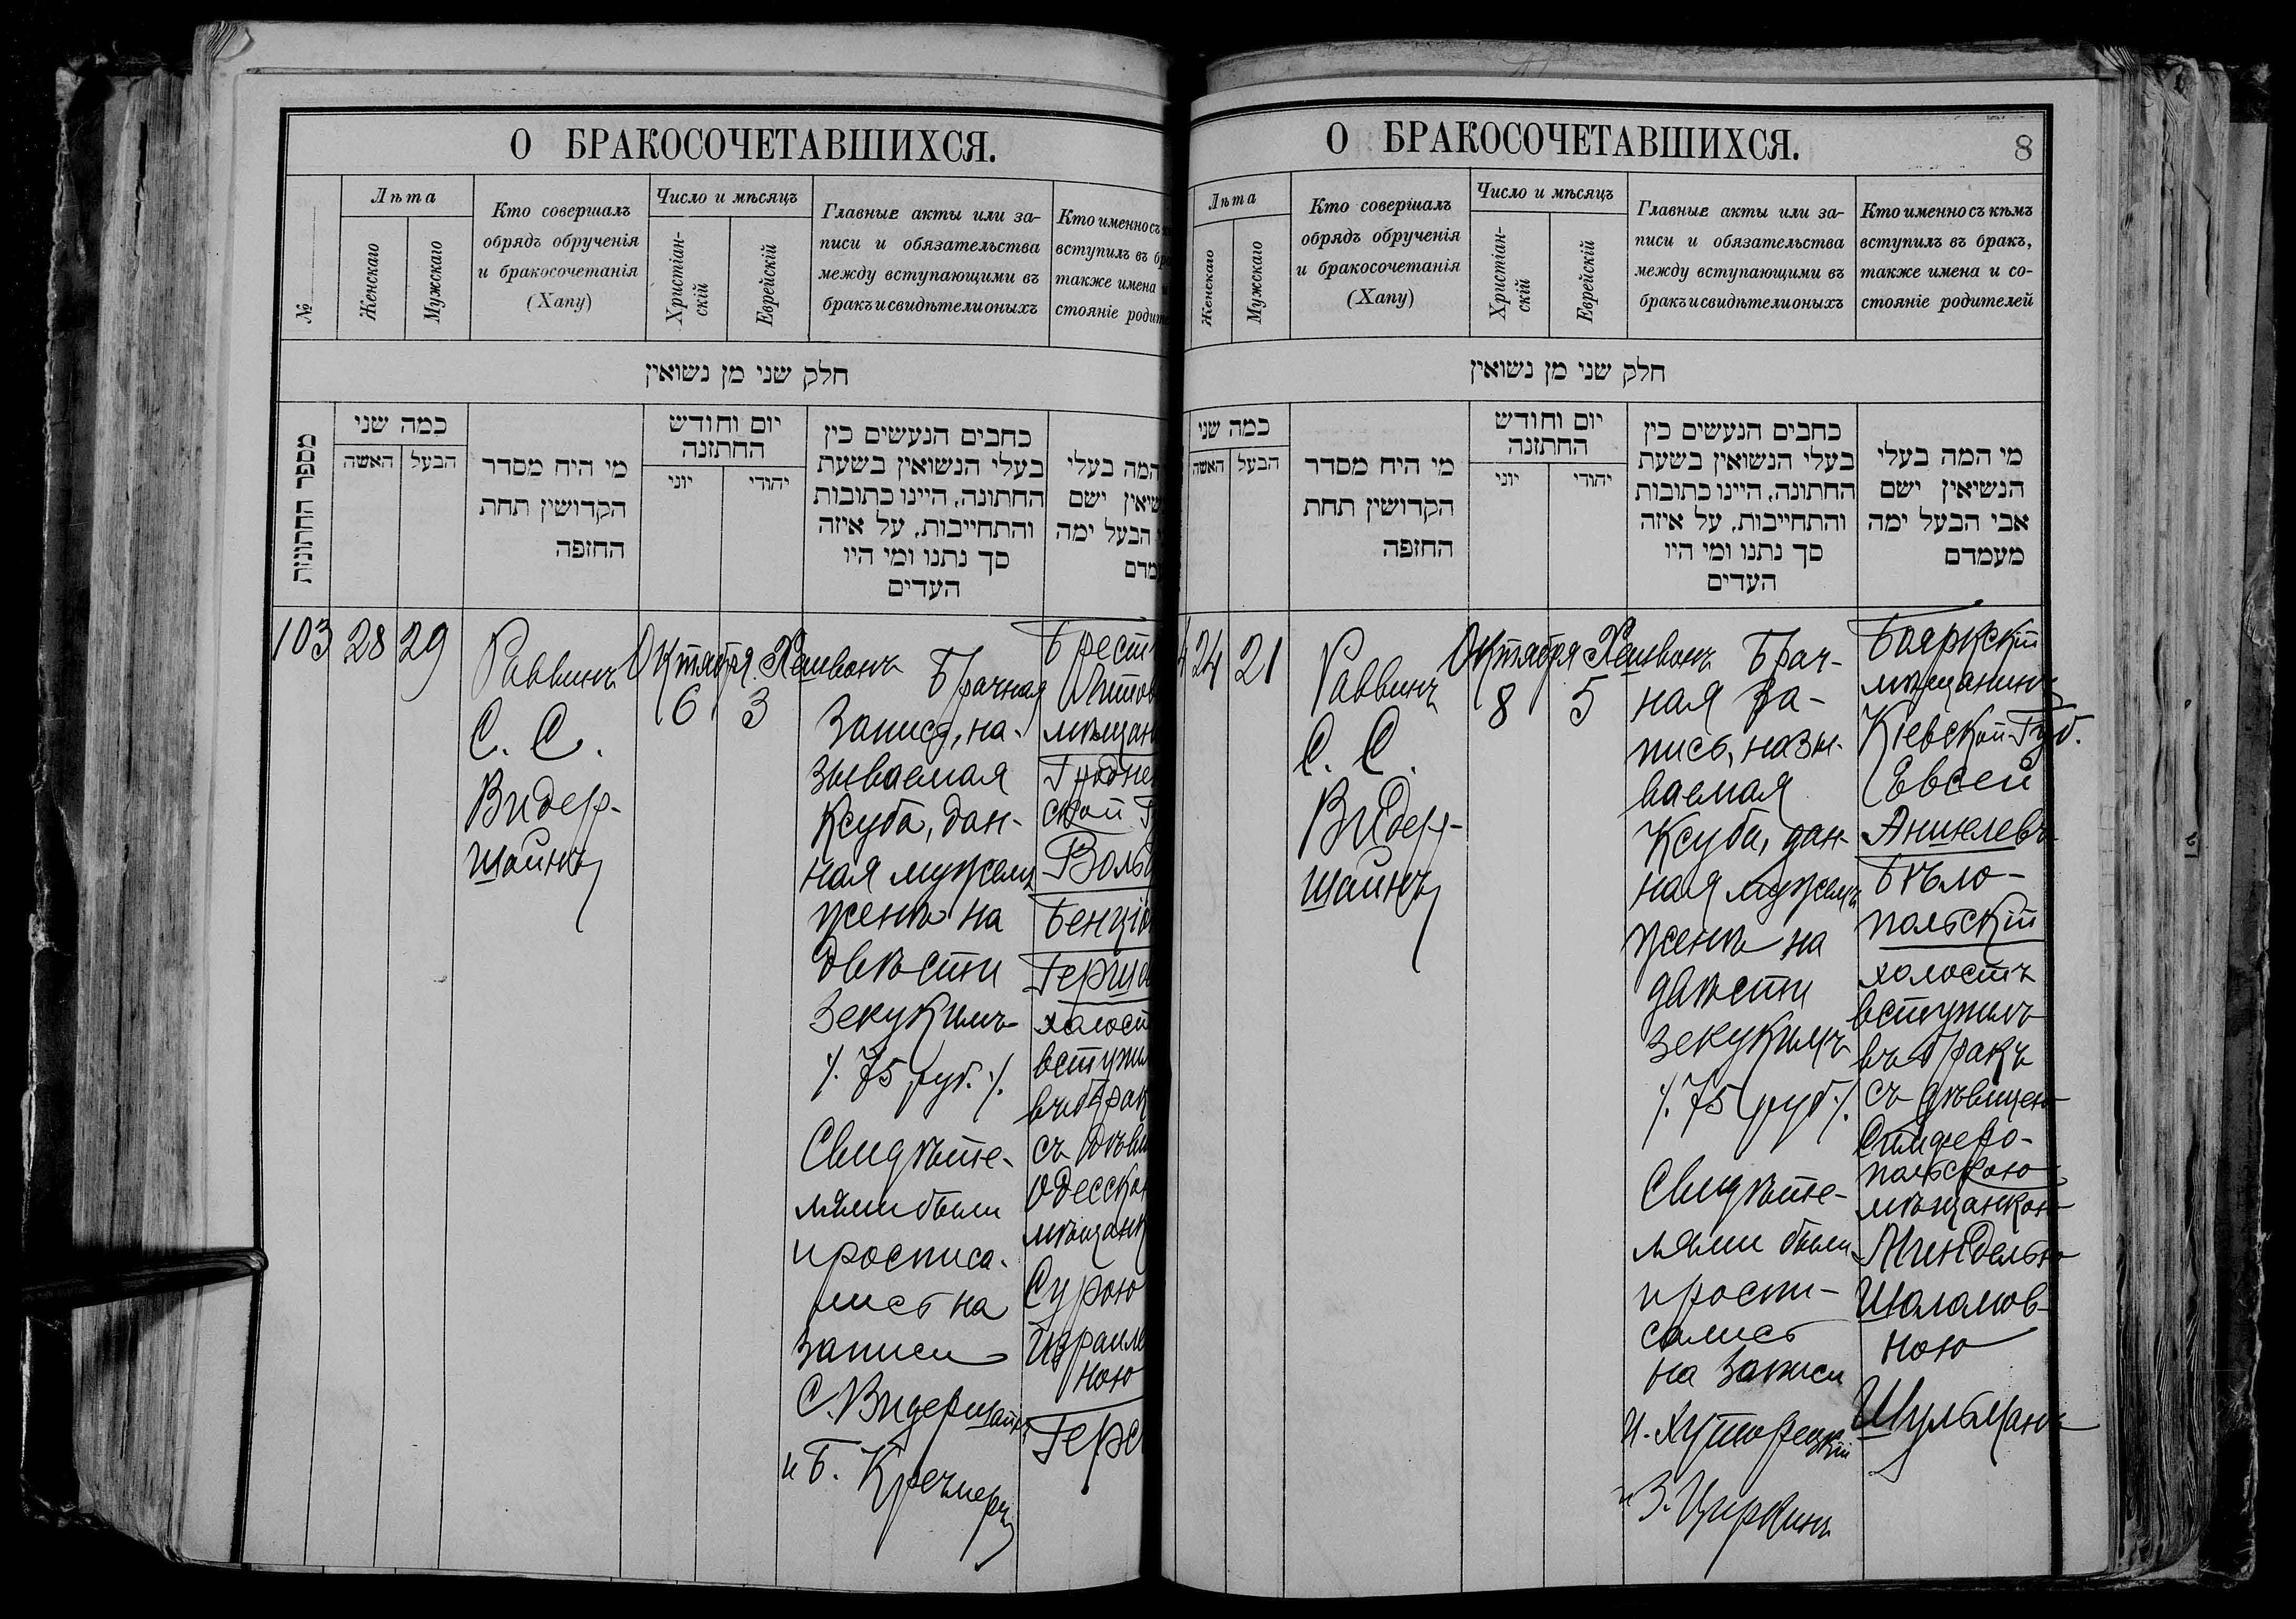 О БРАКОСОЧЕТАВШИХСЯ.
№
Лѣта
Женскаго
Мужскаго
Кто совершалъ
обрядъ обрученія
и бракосочетанія
(Хапу)
Число и мѣсяцъ
Христіан-
скій
Еврейскій
Главные акты или за-
писи и обязательства
между вступающими въ
бракъ и свидѣтели оныхъ
Кто именно съ
вступилъ въ
также имена
стояніе
חלק שני מן נשואין
מספר החתונות
כמה שני
האשה
הבעל
מי היח מסדר
הקדושין תחת
החופה
יום וחודש
החתונה
יוני
יהודי
כחבים הנעשים כין
בעלי הנשואין בשעת
החתונה, היינו כתובות
והתחייבות, על איזה
סך נתנו ומי היו
העדים
המה בעלי
ישם
הבעל ימה
103
28
29
Раввинъ
С. С.
Видер-
шайнъ
Октября
6
Хешванъ
3
Брачная
запись, на-
зываемая
Ксуба, дан-
ная мужемъ
женѣ на
двѣсти
зекукимъ
/. 75 руб. /.
Свидѣте-
лями были
и росписа-
лись на
записи
С. Видершайнъ
и Б. Кречмеръ
Брест
Литов
мѣщан
Гроднен
ской Г
Вольф
Бенціо
Герш
холост
вступил
въ брак
съ дѣви
Одесско
мѣщанк
Сурою
Израиле
ною
Герс
О БРАКОСОЧЕТАВШИХСЯ.
8
Лѣта
Женскаго
Мужскаго
Кто совершалъ
обрядъ обрученія
и бракосочетанія
(Хапу)
Число и мѣсяцъ
Христіан-
скій
Еврейскій
Главные акты или за-
писи и обязательства
между вступающими въ
бракъ и свидѣтели оныхъ
Кто именно съ кѣмъ
вступилъ въ бракъ,
также имена и со-
стояніе родителей
חלק שני מן נשואין
כמה שני
האשה
הבעל
מי היח מסדר
הקדושין תחת
החופה
יום וחודש
החתונה
יוני
יהודי
כחבים הנעשים כין
בעלי הנשואין בשעת
החתונה, היינו כתובות
והתחייבות, על איזה
סך נתנו ומי היו
העדים
מי המה בעלי
הנשיאין ישם
אבי הבעל ימה
מעמדם
24
21
Раввинъ
С. С.
Видер-
шайнъ
Октября
8
Хешванъ
5
Брач-
ная за-
пись, назы-
ваемая
Ксуба, дан-
ная мужемъ
женѣ на
двѣсти
зекукимъ
/. 75 руб. /.
Свидѣте-
лями были
и роспи-
сались
на записи
И. Хуторецкій
и З. Циркинъ
Боярскій
мѣщанинъ
Кіевской Губ.
Евсей
Аншелевъ
Бѣло-
польскій
холостъ
вступилъ
въ бракъ
съ дѣвицею
Симферо-
польскою
мѣщанкою
Минделью
Шоломов-
ною
Шульманъ